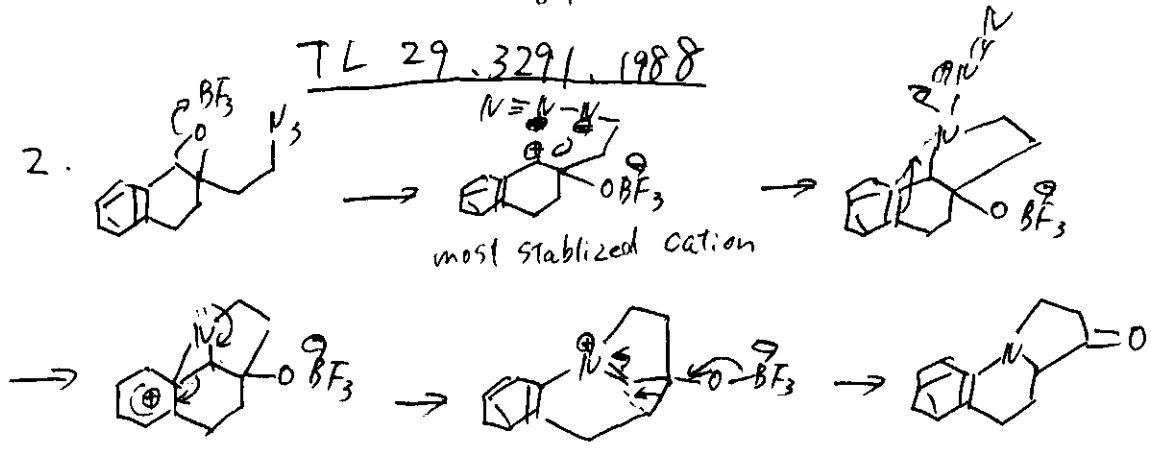 TL 29.3291.1988
2.
BF3
O
N3
N≡N-N
⊕
OBF3 ⊖
most stablized cation
N
⊕N
N
O BF3 ⊖
N
⊕
O BF3 ⊖
⊕
N
O-BF3 ⊖
N
=O